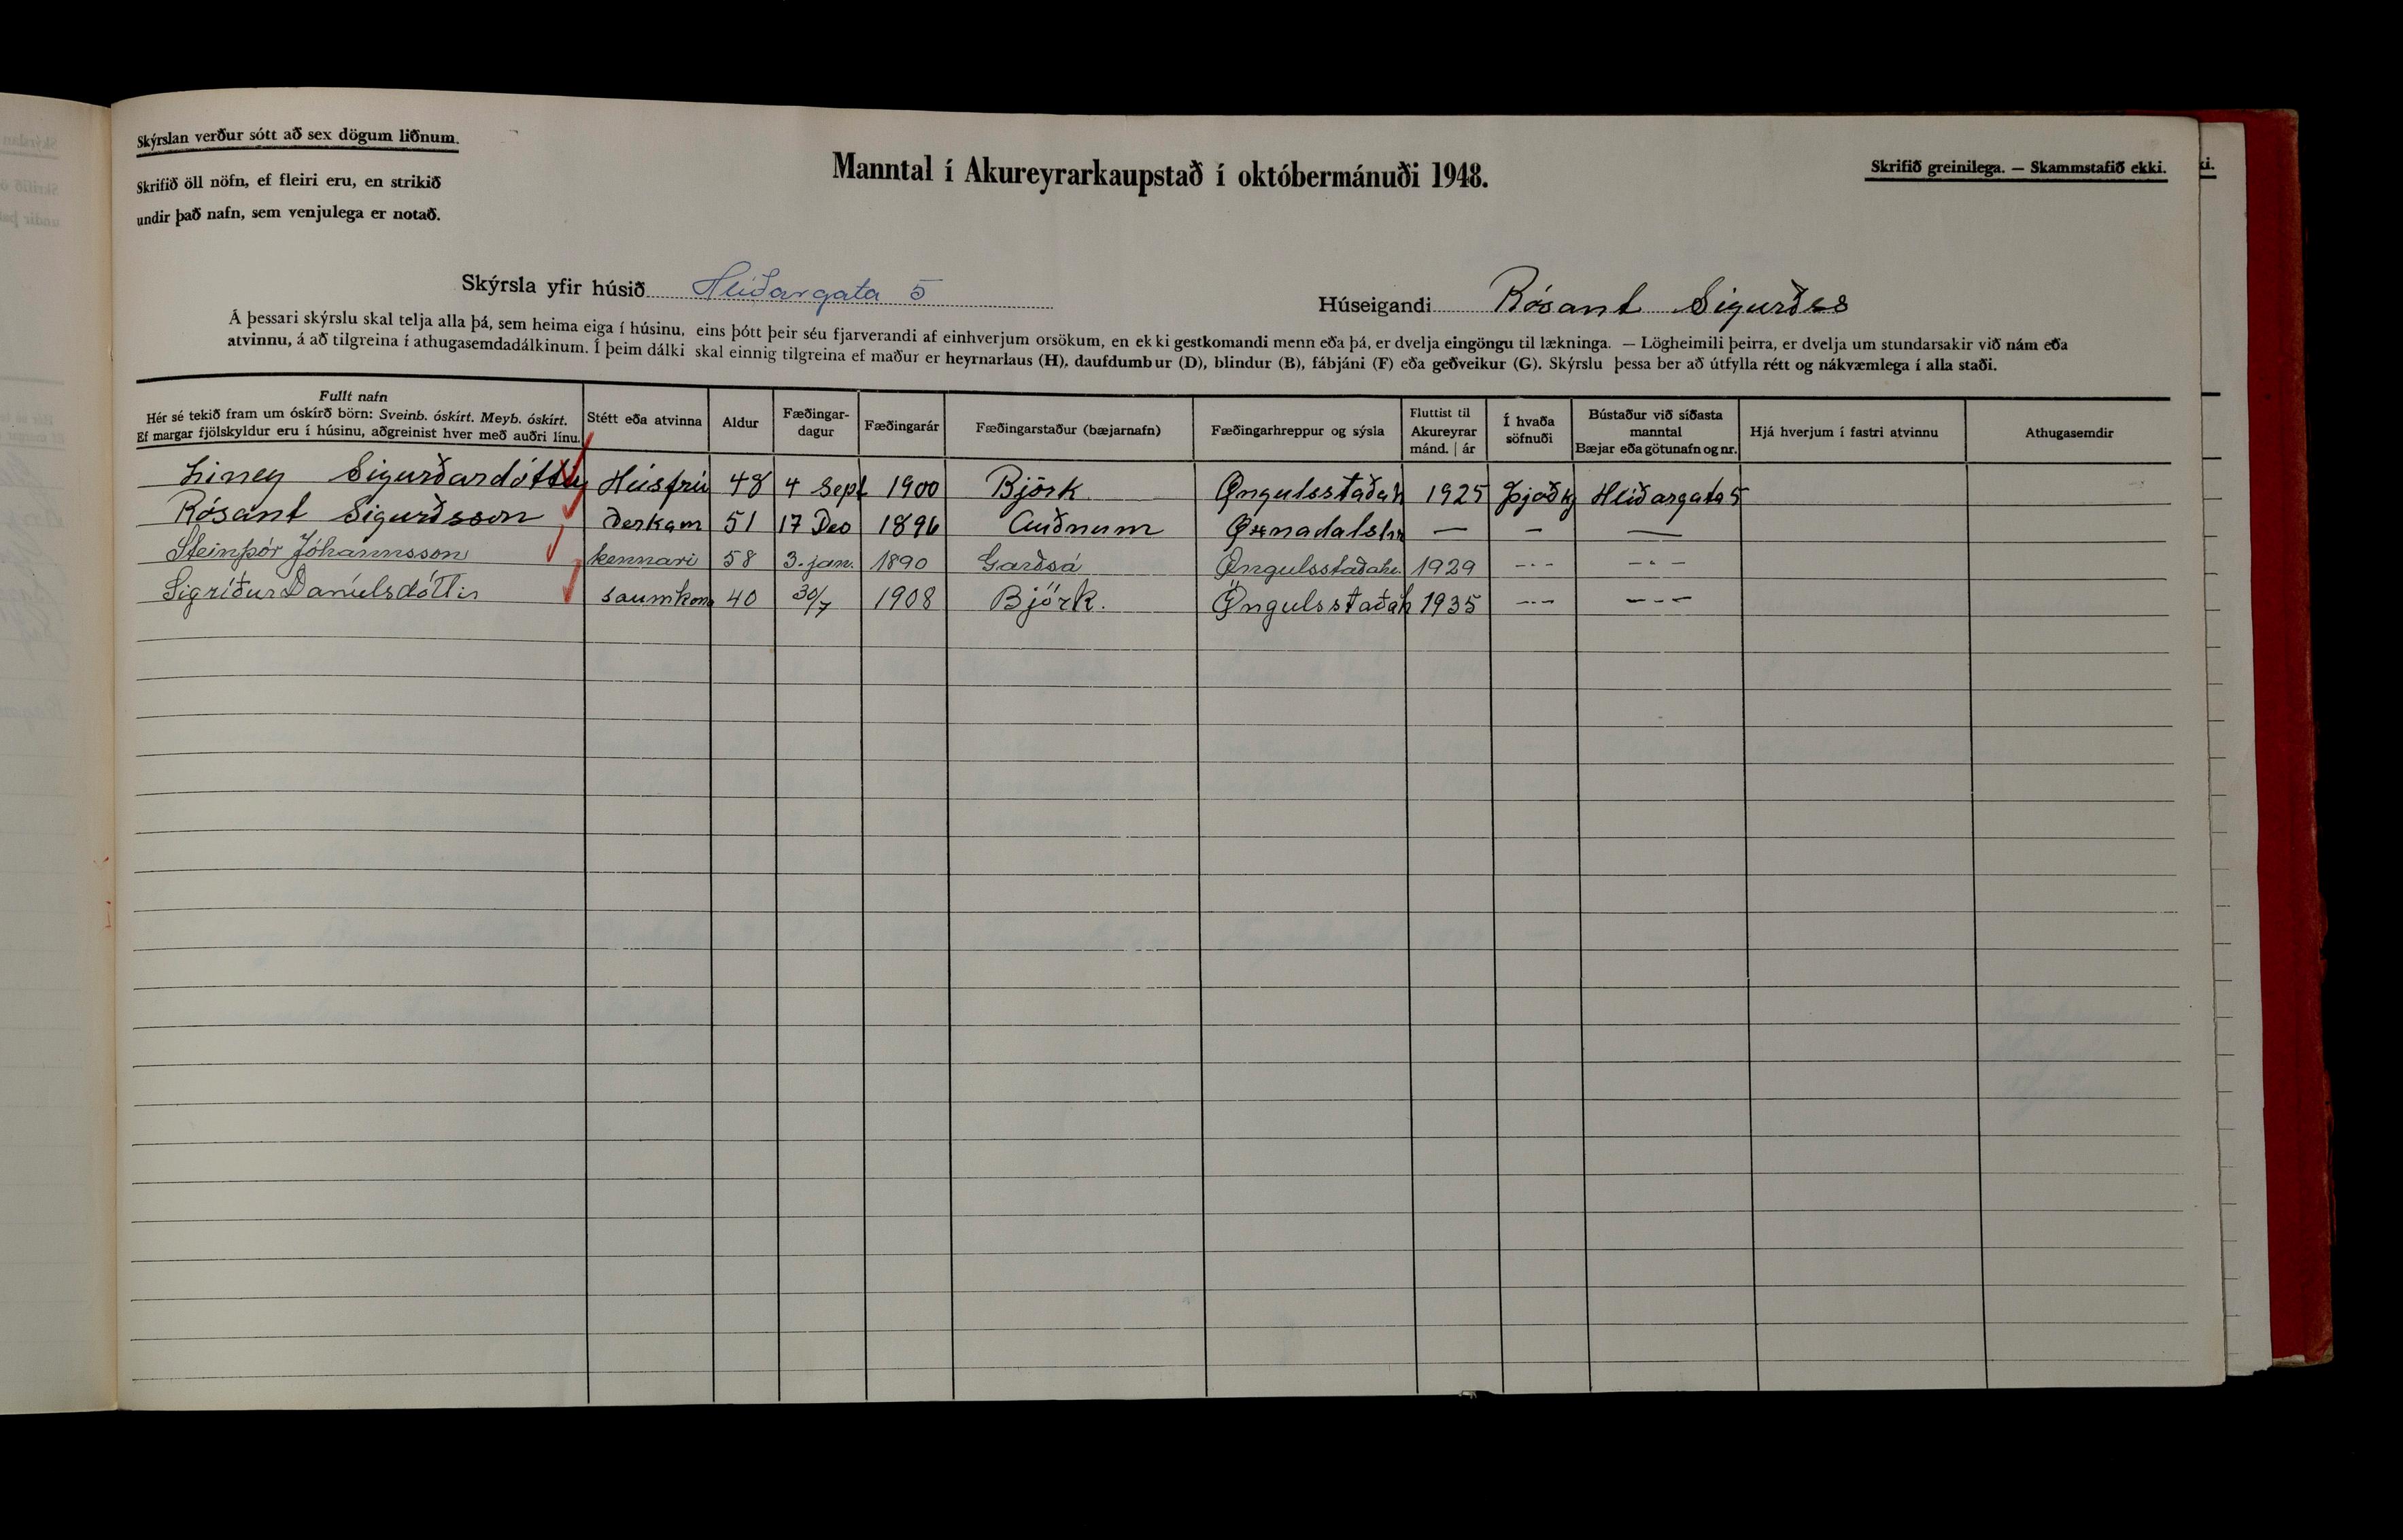 Skýrslan verður sótt að sex dögum liðnum.
Skrifið öll nöfn, ef fleiri eru, en strikið
undir það nafn, sem venjulega er notað.
Manntal í Akureyrarkaupstað í októbermánuði 1948.
Skrifið greinilega. — Skammstafið ekki.
Skýrsla yfir húsið Hlíðargata 5
Húseigandi Rósant Sigurðss
Á þessari skýrslu skal telja alla þá, sem heima eiga í húsinu, eins þótt þeir séu fjarverandi af einhverjum orsökum, en ekki gestkomandi menn eða þá, er dvelja eingöngu til lækninga. — Lögheimili þeirra, er dvelja um stundarsakir við nám eða
atvinnu, á að tilgreina í athugasemdadálkinum. Í þeim dálki skal einnig tilgreina ef maður er heyrnarlaus (H), daufdumbur (D), blindur (B), fábjáni (F) eða geðveikur (G). Skýrslu þessa ber að útfylla rétt og nákvæmlega í alla staði.
Fullt nafn
Hér sé tekið fram um óskírð börn: Sveinb. óskírt. Meyb. óskírt.
Ef margar fjölskyldur eru í húsinu, aðgreinist hver með auðri línu.
Stétt eða atvinna
Aldur
Fæðingar-
dagur
Fæðingarár
Fæðingarstaður (bæjarnafn)
Fæðingarhreppur og sýsla
Fluttist til
Akureyrar
mánd. | ár
Í hvaða
söfnuði
Bústaður við síðasta
manntal
Bæjar eða götunafn og nr.
Hjá hverjum í fastri atvinnu
Athugasemdir
Liney Sigurðardóttir Húsfrú 48 4 Sept 1900 Björk Öngulsstaðah 1925 Þjóðk Hlíðargata 5
Rósant Sigurðsson Verkam 51 17 Des 1896 Auðnum Öxnadalshr — — —
Steinþór Jóhannsson kennari 58 3. jan. 1890 Garðsá Öngulsstaðahr. 1929 -·- -·-
Sigríður Daníelsdóttir saumkona 40 30/7 1908 Björk. Öngulsstaðah 1935 -·- -·-